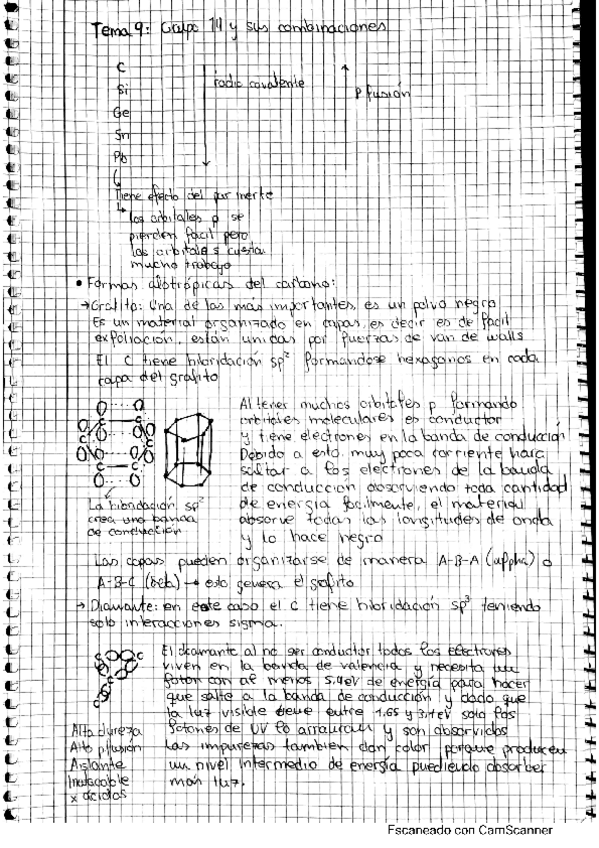 Tema 9: Grupo 14 y sus combinaciones
C
Si
Ge
Sn
Pb
radio covalente
P fusión
Tiene efecto del par inerte
los orbitales p se
pierden facil pero
los orbitales s cuesta
mucho trabajo
• Formas alotrópicas del carbono:
→ Grafito: Una de las más importantes, es un polvo negro
Es un material organizado en capas, es decir es de facil
expoliación, están unidas por fuerzas de van de walls
El C tiene hibridación sp² formandose hexagonos en cada
capa del grafito
Al tener muchos orbitales p formando
orbitales moleculares es conductor
y tiene electrones en la banda de conducción
Debido a esto, muy poca corriente hará
saltar a los electrones de la banda
de conducción absorviendo toda cantidad
de energía facilmente, el material
absorve todas las longitudes de onda
y lo hace negro
La hibridación sp²
crea una banda
de conducción
Las capas pueden organizarse de manera A-B-A (alpha) o
A-B-C (beta) → esto genera el grafito
→ Diamante: en este caso el C tiene hibridación sp³ teniendo
solo interacciones sigma.
El diamante al no ser conductor todos los electrones
viven en la banda de valencia y necesita un
foton con al menos 5.4eV de energía para hacer
que salte a la banda de conducción y dado que
la luz visible tiene entre 1.65 y 3.1eV solo los
fotones de UV lo arrancan y son absorvidos
Las impurezas tambien dan color porque producen
un nivel intermedio de energía pudiendo absorber
más luz.
Alta dureza
Alto p fusión
Aislante
Inatacable
x ácidos
Escaneado con CamScanner